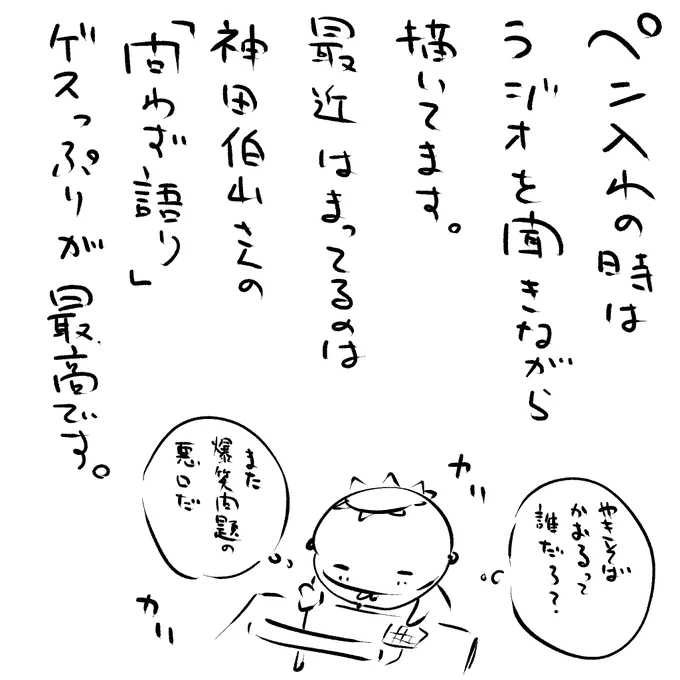 ペン入れの時は
ラジオを聞きながら
描いてます。
最近はまってるのは
神田伯山さんの
「問わず語り」
ゲスっぷりが最高です。
カリ
やきそば
かおるって
誰だろ？
また
爆笑問題の
悪口だ
カリ